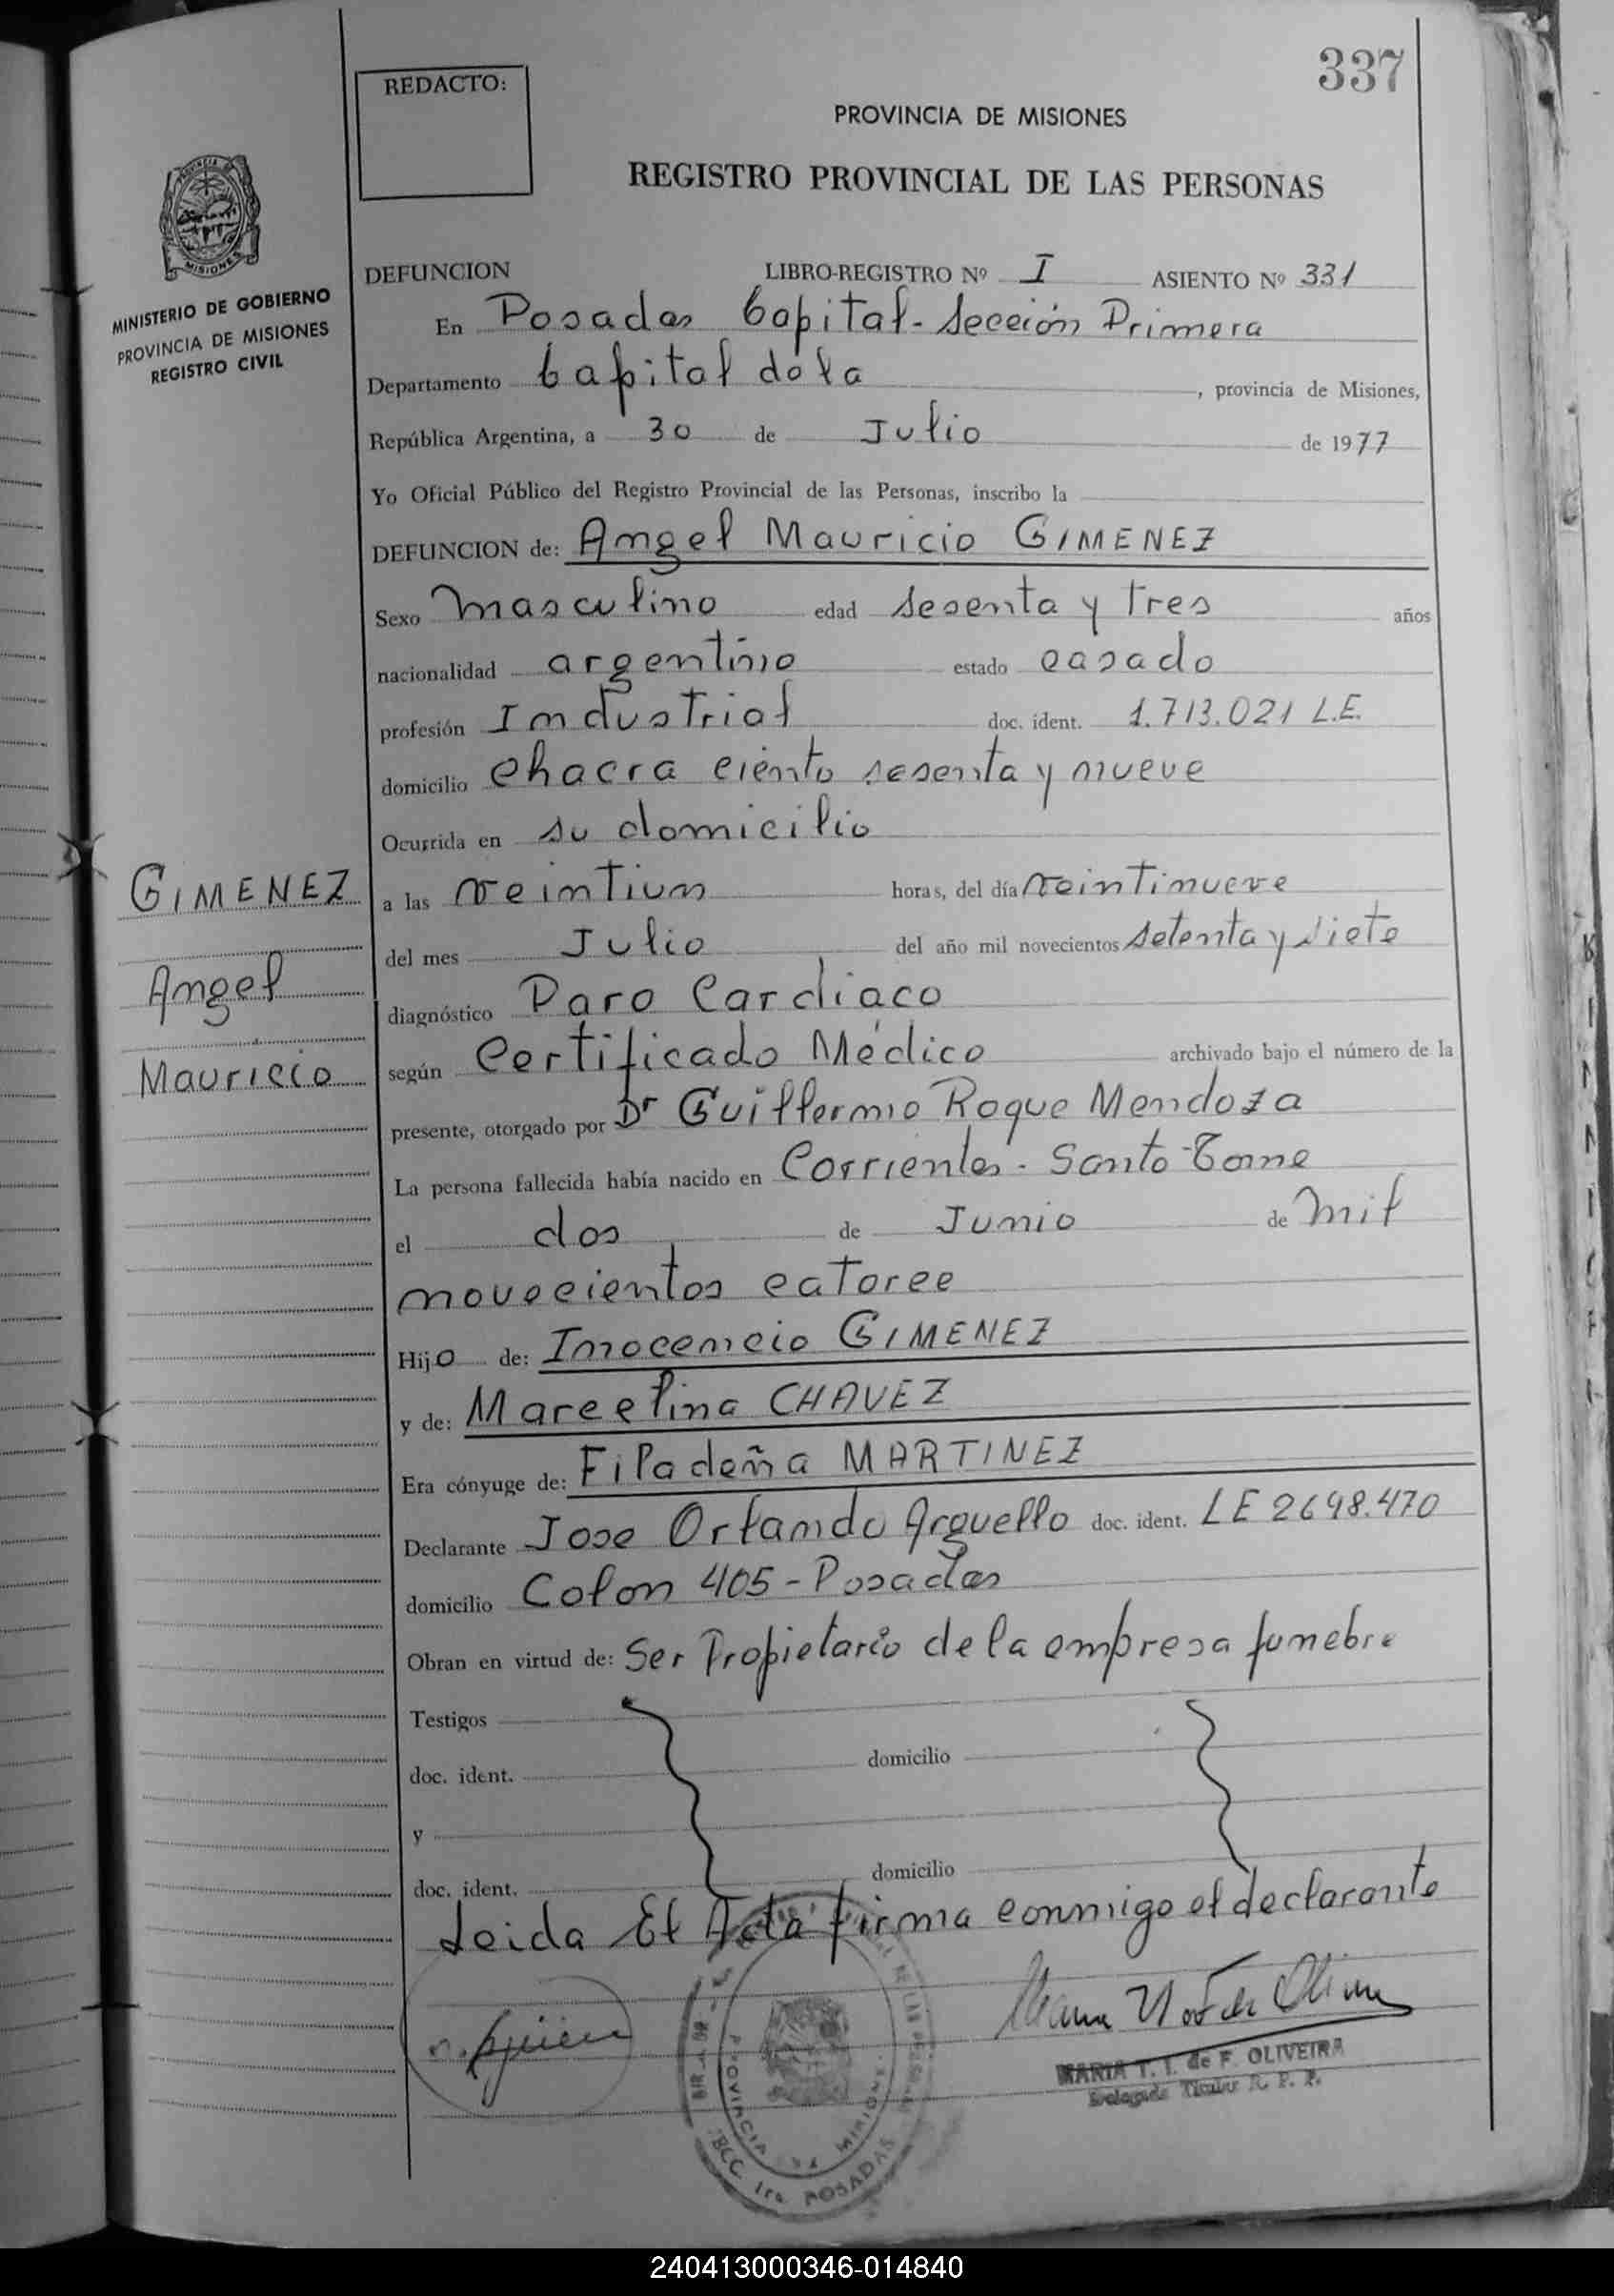 337
REDACTO:
PROVINCIA DE MISIONES
REGISTRO PROVINCIAL DE LAS PERSONAS
PROVINCIA DE
MISIONES
MINISTERIO DE GOBIERNO
PROVINCIA DE MISIONES
REGISTRO CIVIL
DEFUNCION LIBRO-REGISTRO Nº I ASIENTO Nº 331
En Posadas Capital - Sección Primera
Departamento Capital de la, provincia de Misiones,
República Argentina, a 30 de Julio de 1977
Yo Oficial Público del Registro Provincial de las Personas, inscribo la
DEFUNCION de: Angel Mauricio GIMENEZ
Sexo masculino edad sesenta y tres años
nacionalidad argentino estado casado
profesión Industrial doc. ident. 1.713.021 L.E.
domicilio chacra ciento sesenta y nueve
Ocurrida en su domicilio
GIMENEZ
Angel
Mauricio
a las veintiun horas, del día veintinueve
del mes Julio del año mil novecientos setenta y siete
diagnóstico Paro Cardiaco
según Certificado Médico archivado bajo el número de la
presente, otorgado por Dr Guillermo Roque Mendoza
La persona fallecida había nacido en Corrientes - Santo Tome
el dos de Junio de mil
novecientos catorce
Hijo de: Inocencio GIMENEZ
y de: Marcelina CHAVEZ
Era cónyuge de: Filadeña MARTINEZ
Declarante Jose Orlando Arguello doc. ident. LE 2698.470
domicilio Colon 405 - Posadas
Obran en virtud de: Ser Propietario de la empresa funebre
Testigos
doc. ident. domicilio
y
doc. ident. domicilio
Leida El Acta firma conmigo el declarante
MARIA T. I. de F. OLIVEIRA
Delegada Titular R. P. P.
PROVINCIA DE MISIONES
SECC. 1ra POSADAS
240413000346-014840